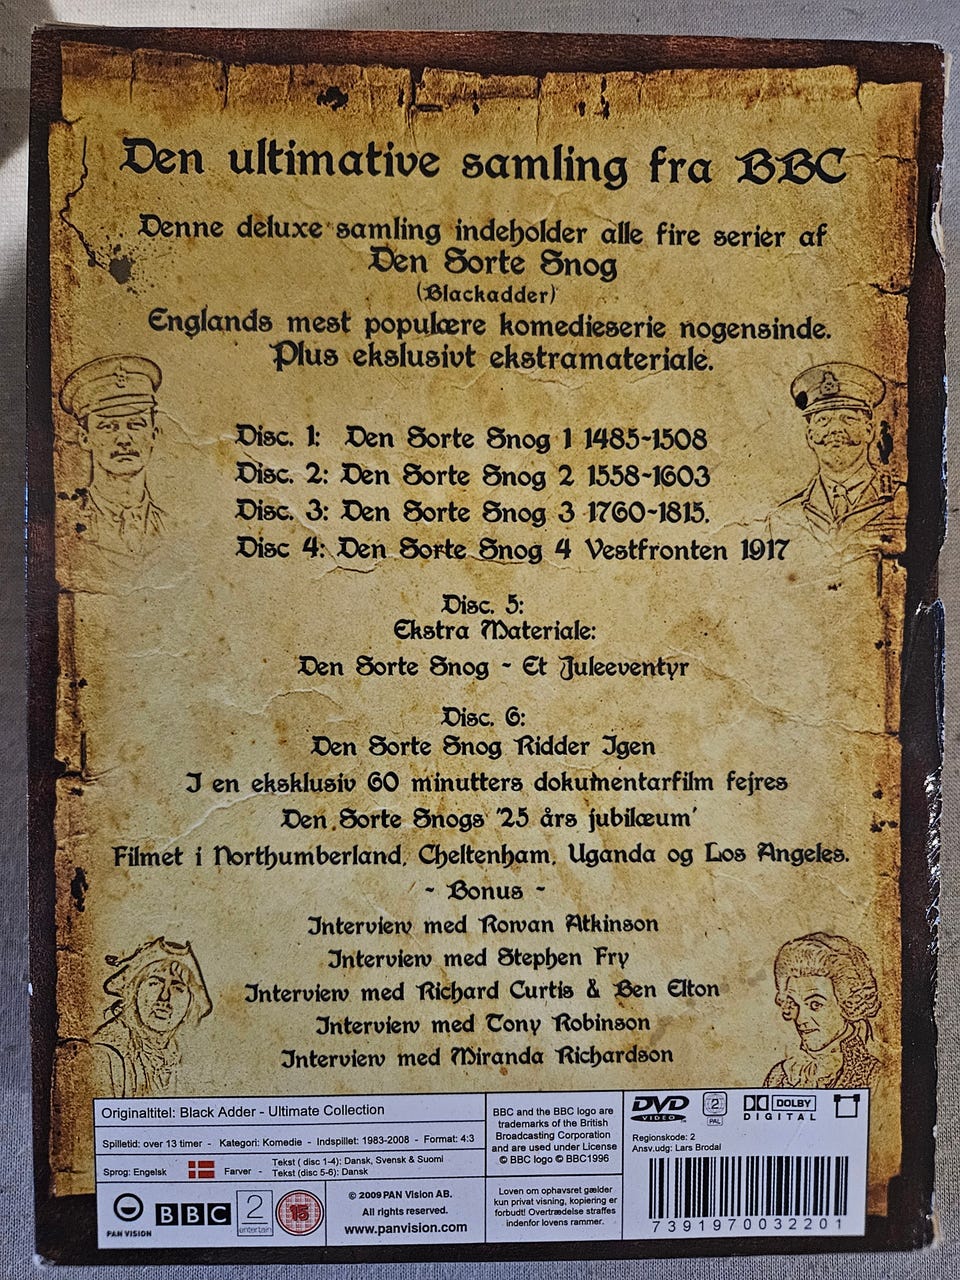 Den ultimative samling fra BBC
Denne deluxe samling indeholder alle fire serier af
Den Sorte Snog
(Blackadder)
Englands mest populære komedieserie nogensinde.
Plus ekslusivt ekstramateriale.
Disc. 1: Den Sorte Snog 1 1485-1508
Disc. 2: Den Sorte Snog 2 1558-1603
Disc. 3: Den Sorte Snog 3 1760-1815.
Disc 4: Den Sorte Snog 4 Vestfronten 1917
Disc. 5:
Ekstra Materiale:
Den Sorte Snog - Et Juleeventyr
Disc. 6:
Den Sorte Snog Ridder Igen
I en eksklusiv 60 minutters dokumentarfilm fejres
Den Sorte Snogs '25 års jubilæum'
Filmet i Northumberland, Cheltenham, Uganda og Los Angeles.
- Bonus -
Interview med Rowan Atkinson
Interview med Stephen Fry
Interview med Richard Curtis & Ben Elton
Interview med Tony Robinson
Interview med Miranda Richardson
Originaltitel: Black Adder - Ultimate Collection
Spilletid: over 13 timer - Kategori: Komedie - Indspillet: 1983-2008 - Format: 4:3
Sprog: Engelsk Farver - Tekst ( disc 1-4): Dansk, Svensk & Suomi
Tekst (disc 5-6): Dansk
PAN VISION
BBC
2
entertain
15
© 2009 PAN Vision AB.
All rights reserved.
www.panvision.com
BBC and the BBC logo are
trademarks of the British
Broadcasting Corporation
and are used under License
© BBC logo © BBC1996
Loven om ophavsret gælder
kun privat visning, kopiering er
forbudt! Overtrædelse straffes
indenfor lovens rammer.
DVD
VIDEO
2
PAL
DOLBY
DIGITAL
Regionskode: 2
Ansv.udg: Lars Brodal
7391970032201